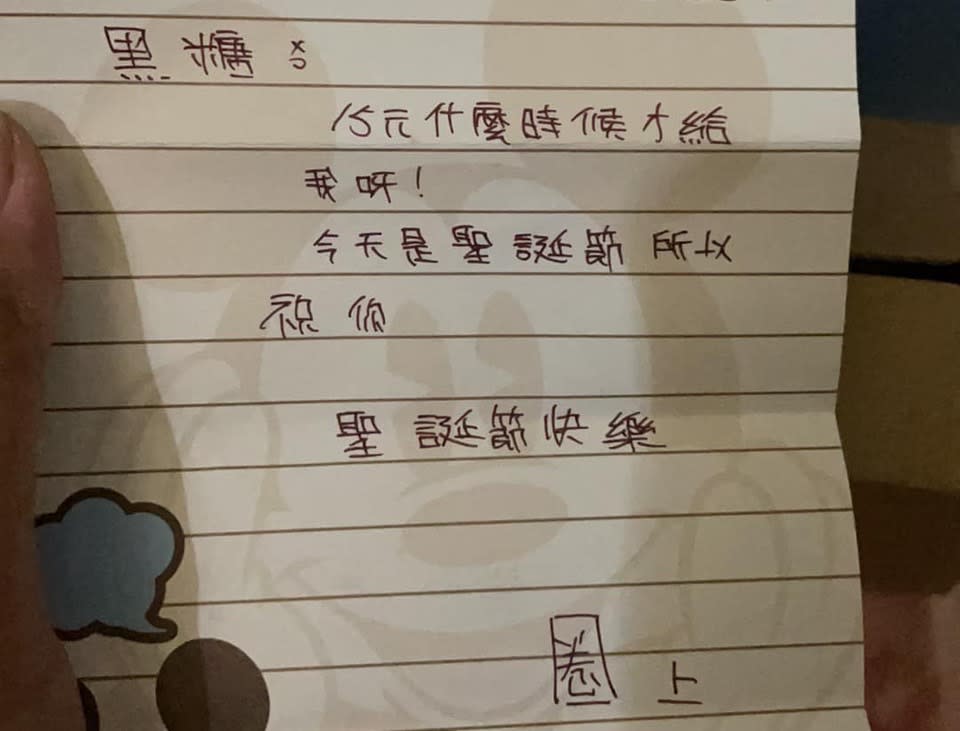 黑糖:
15元什麼時候才給
我呀!
今天是聖誕節所以
祝你
聖誕節快樂
圈上